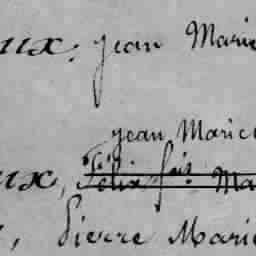 aux, Jean Marie
Jean Marie
aux, Félix fait Ma
, Pierre Marie